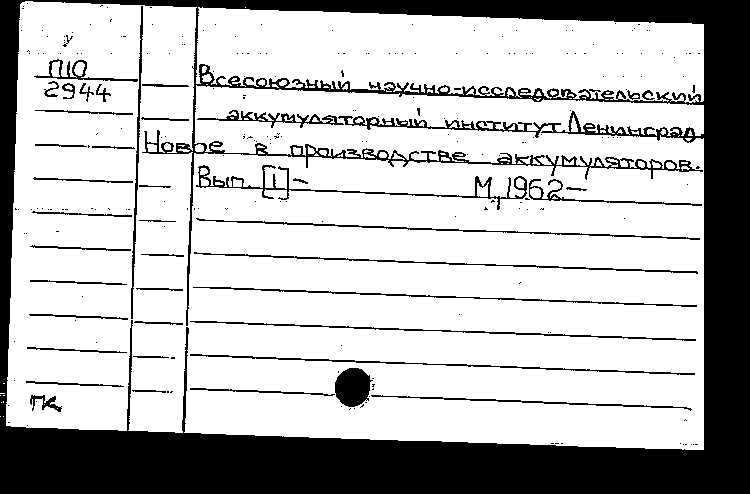 у
П10
2944
Всесоюзный научно-исследовательский
аккумуляторный институт. Ленинград.
Новое в производстве аккумуляторов.
Вып. [1]– М., 1962–
тк